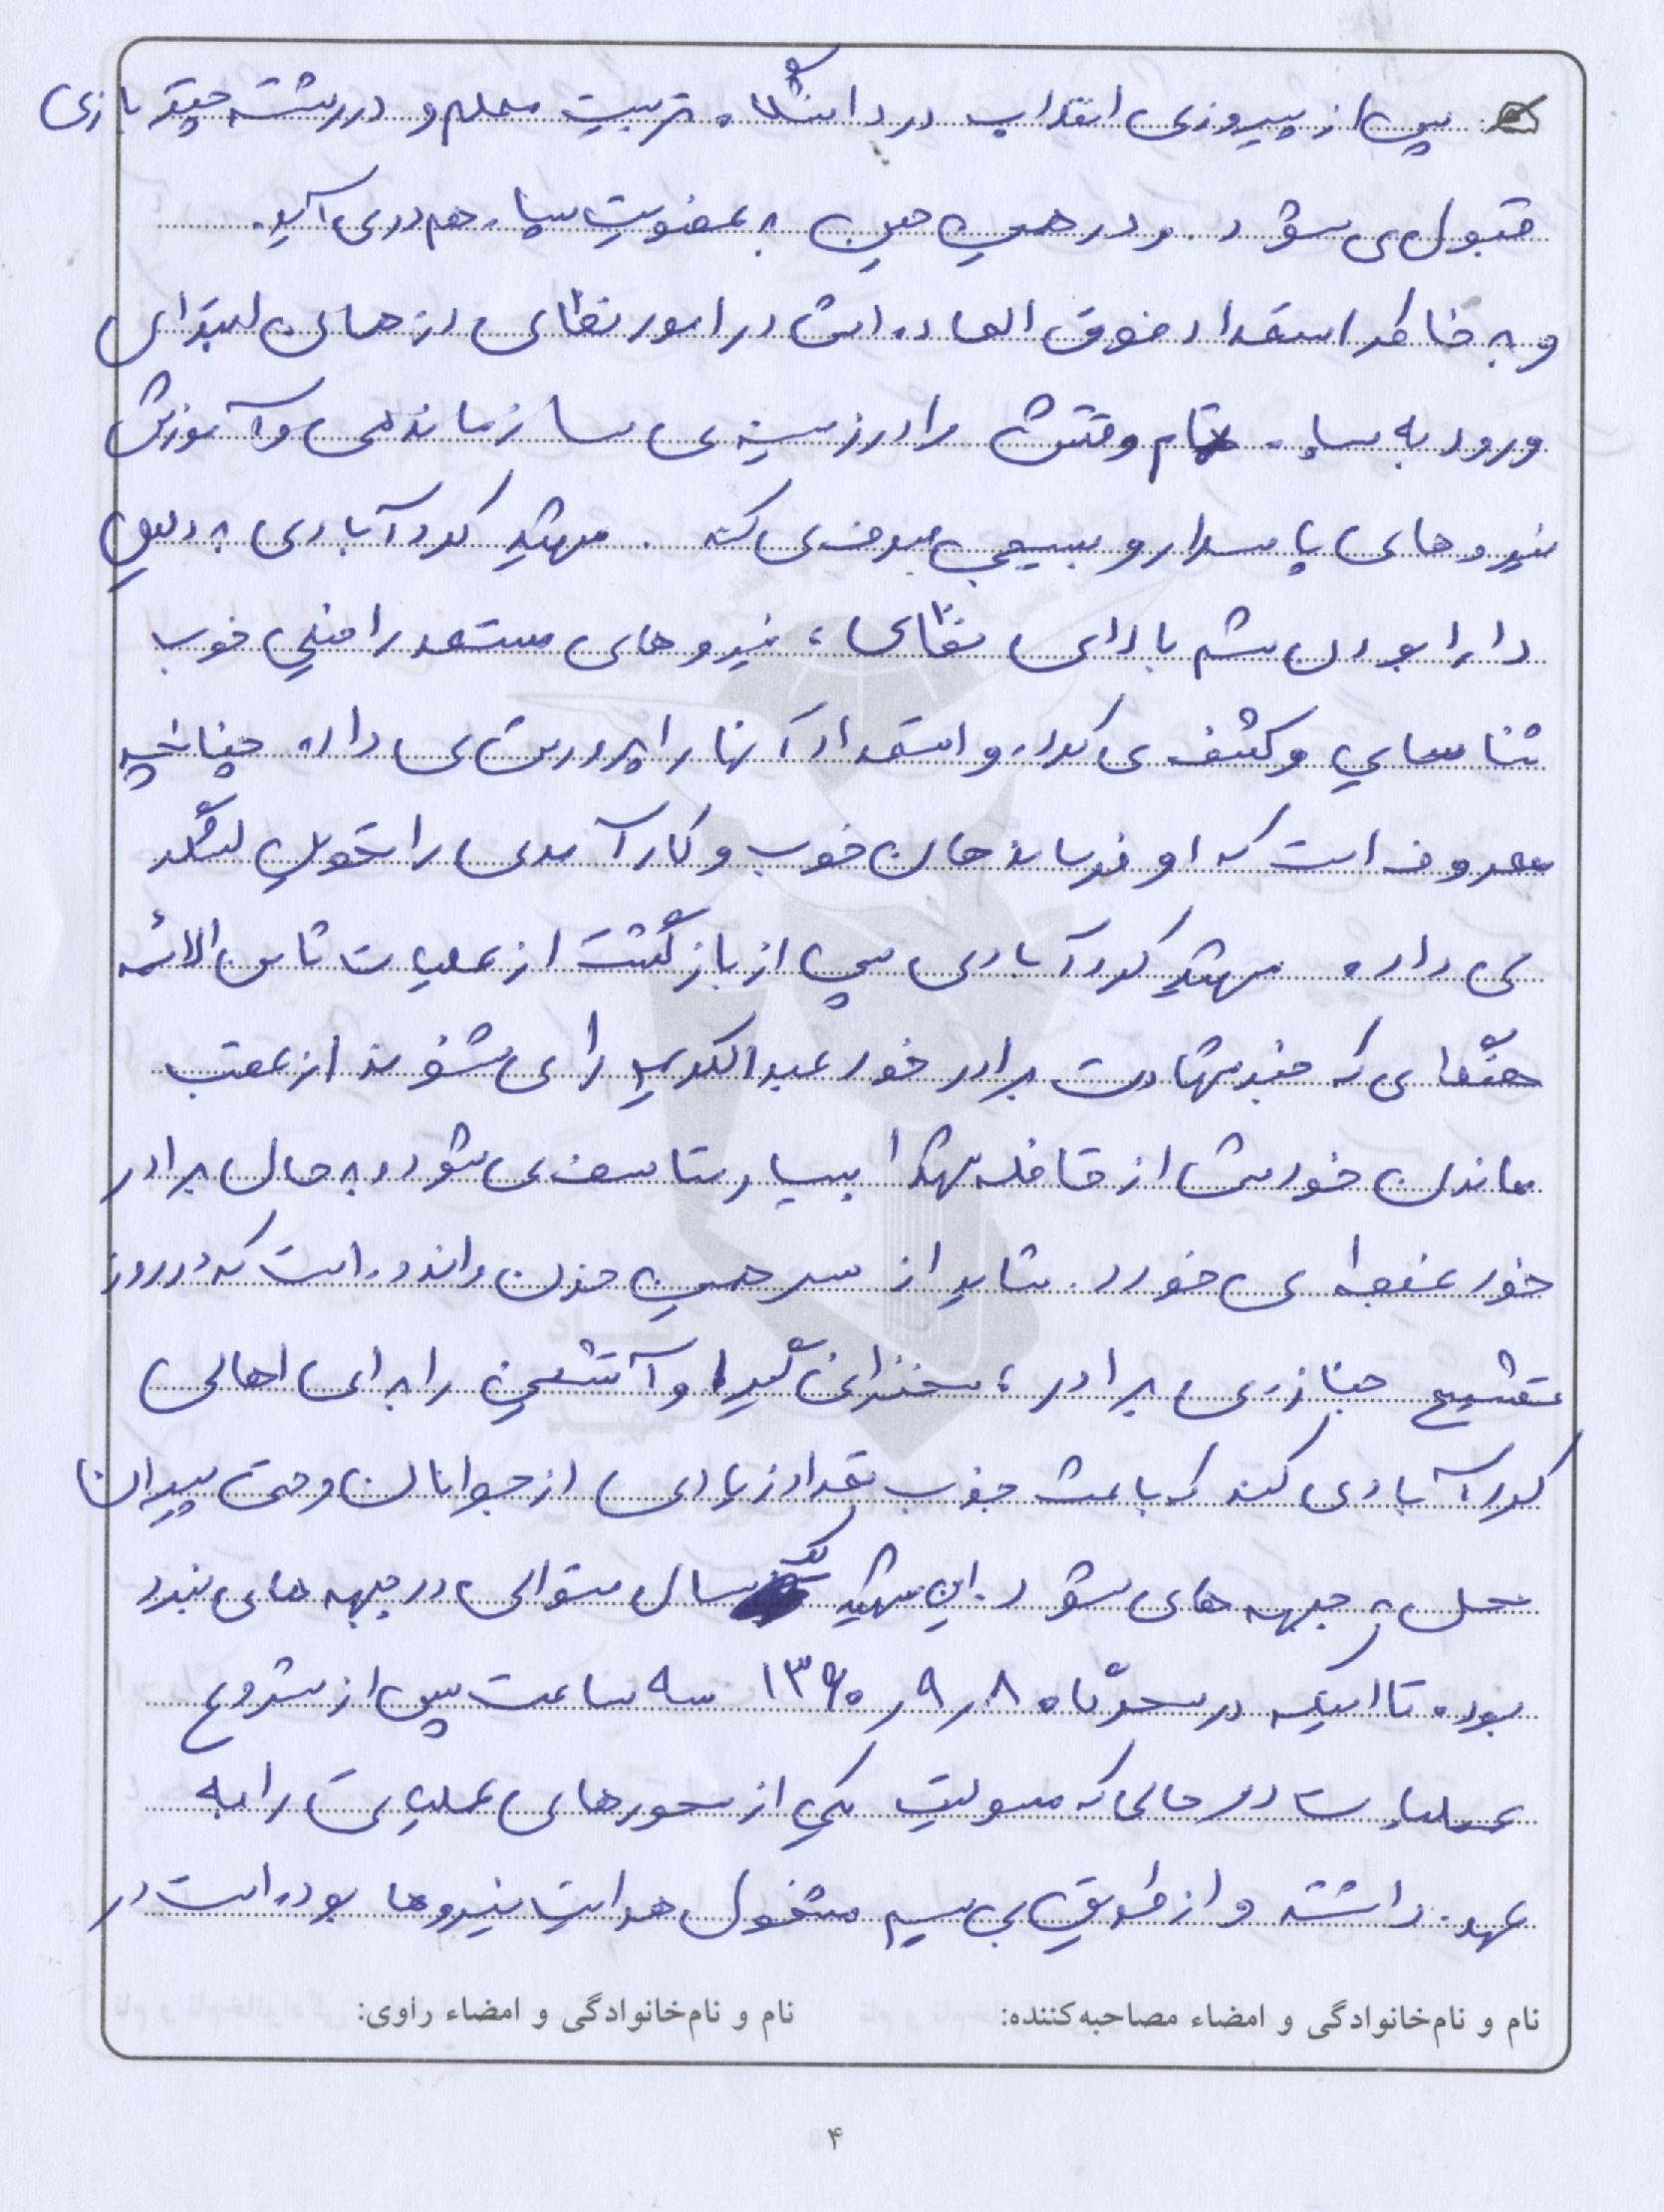 پس از پیروزی انقلاب در دانشگاه تربیت معلم و در رشته چتر بازی
قبول می شود. و در همین حین به عضویت سپاه هم در می آید.
و به خاطر استعداد فوق العاده اش در امور نظامی از همان ابتدای
ورود به سپاه تمام وقتش را در زمینه ی سازماندهی و آموزش
نیروهای پاسدار و بسیجی صرف می کند. شهید کردآبادی به دلیل
دارا بودن شم بالای نظامی، نیروهای مستعد را خیلی خوب
شناسایی و کشف می کرد. و استعداد آنها را پرورش می داد چنانچه
معروف است که او فرماندهان خوب و کارآمدی را تحویل لشگر
می داد شهید کردآبادی پس از بازگشت از عملیات ثامن الائمه
هنگامی که خبر شهادت برادر خود عبدالکریم را می شنوند از عقب
ماندن خودش از قافله شهدا بسیار متاسف می شود و به حال برادر
خود غبطه می خورد. شاید از سر همین حزن و اندوه است که در روز
تشییع جنازه ی برادر، سخنرانی گیرا و آتشینی را برای اهالی
کردآبادی کند که باعث جذب تعداد زیادی از جوانان و حتی پیران
محل به جبهه های شود. این شهید سال متوالی در جبهه های نبرد
بوده تا اینکه در سحرگاه ۸ر۹ر۱۳۶۰ سه ساعت پس از شروع
عملیات در حالی که مسولیت یکی از محورهای عملیاتی را به
عهده داشته و از طریق بی سیم مشغول هدایت نیروها بوده است در
نام و نام‌خانوادگی و امضاء مصاحبه‌کننده: نام و نام‌خانوادگی و امضاء راوی:
۴